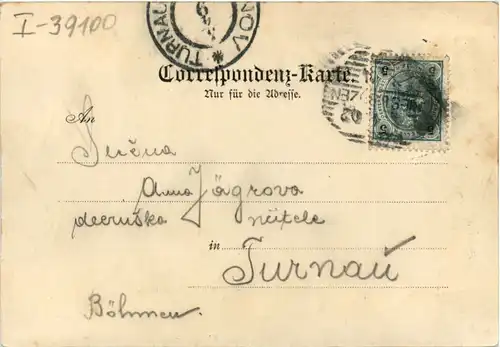 I-39100
TURNAU
NOV
Correspondenz-Karte.
Nur für die Adresse.
5 5
An
Slečna
Anna Jägrova
dceruška
in
Turnau
Böhmen.